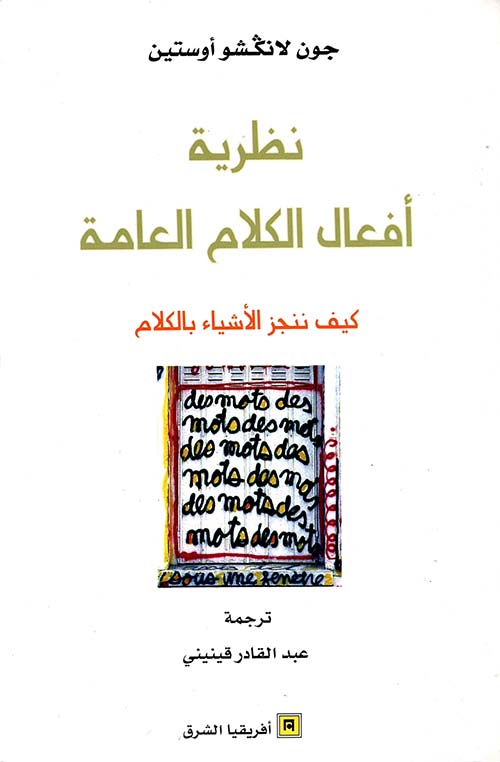 جون لانڭشو أوستين
نظرية
أفعال الكلام العامة
كيف ننجز الأشياء بالكلام
des mots des
mots des mots
des mots das
mots des mots
des mots des
mots des mots
sous une fenetre
ترجمة
عبد القادر قينيني
أفريقيا الشرق